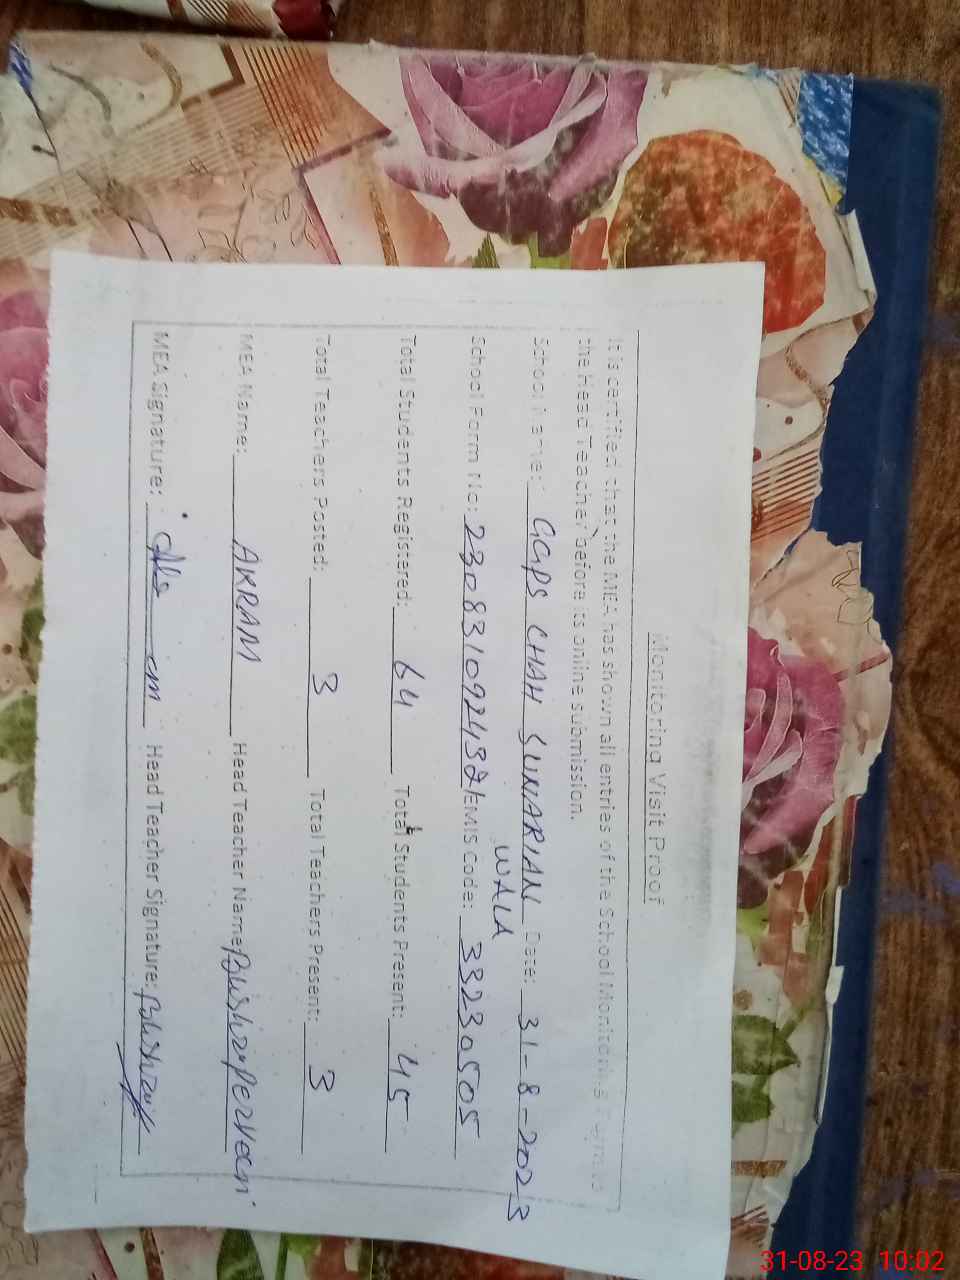 Monitoring Visit Proof
It is certified that the MEA has shown all entries of the School Monitoring to
the Head Teacher before its online submission.
School Name: GGPS CHAH SUNARIAN WALA Date: 31-8-2023
School Form No: 230831092432 EMIS Code: 33230505
Total Students Registered: 64 Total Students Present: 45
Total Teachers Posted: 3 Total Teachers Present: 3
MEA Name: AKRAM Head Teacher Name: Bushra Perveen
MEA Signature: Head Teacher Signature: Bushra
31-08-23 10:02